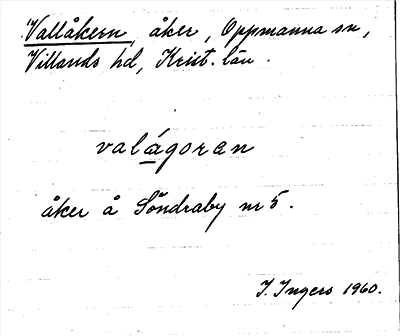 Vallåkern, åker, Oppmanna sn,
Villands hd, Krist. län.
valágoran
åker å Söndraby nr 5.
I. Ingers 1960.